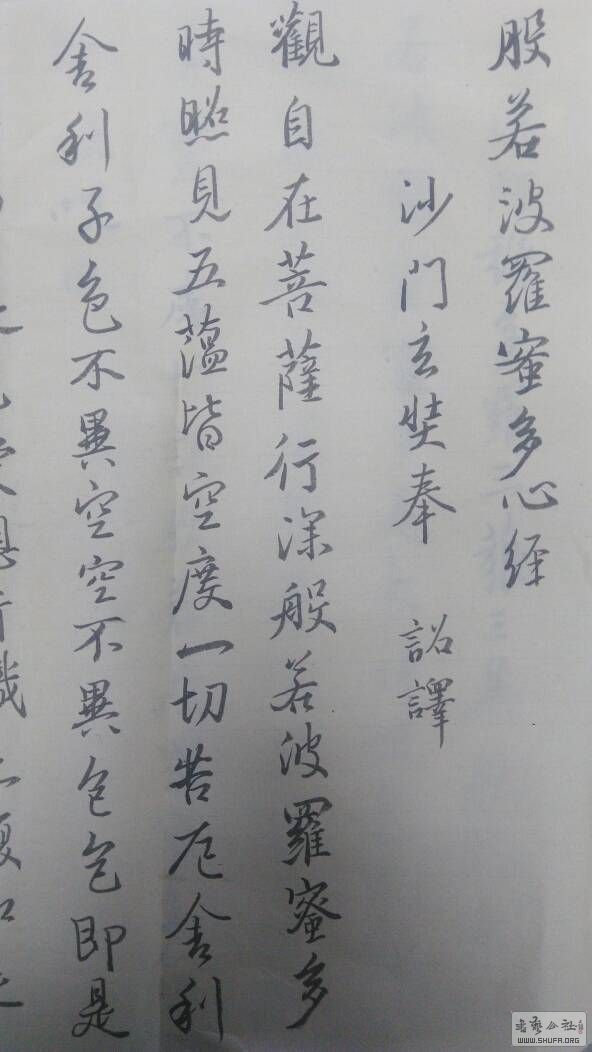 般若波羅蜜多心経
沙門玄奘奉 詔譯
觀自在菩薩行深般若波羅蜜多
時照見五蘊皆空度一切苦厄舍利
舍利子色不異空空不異色色即是
書藝公社
WWW.SHUFA.ORG